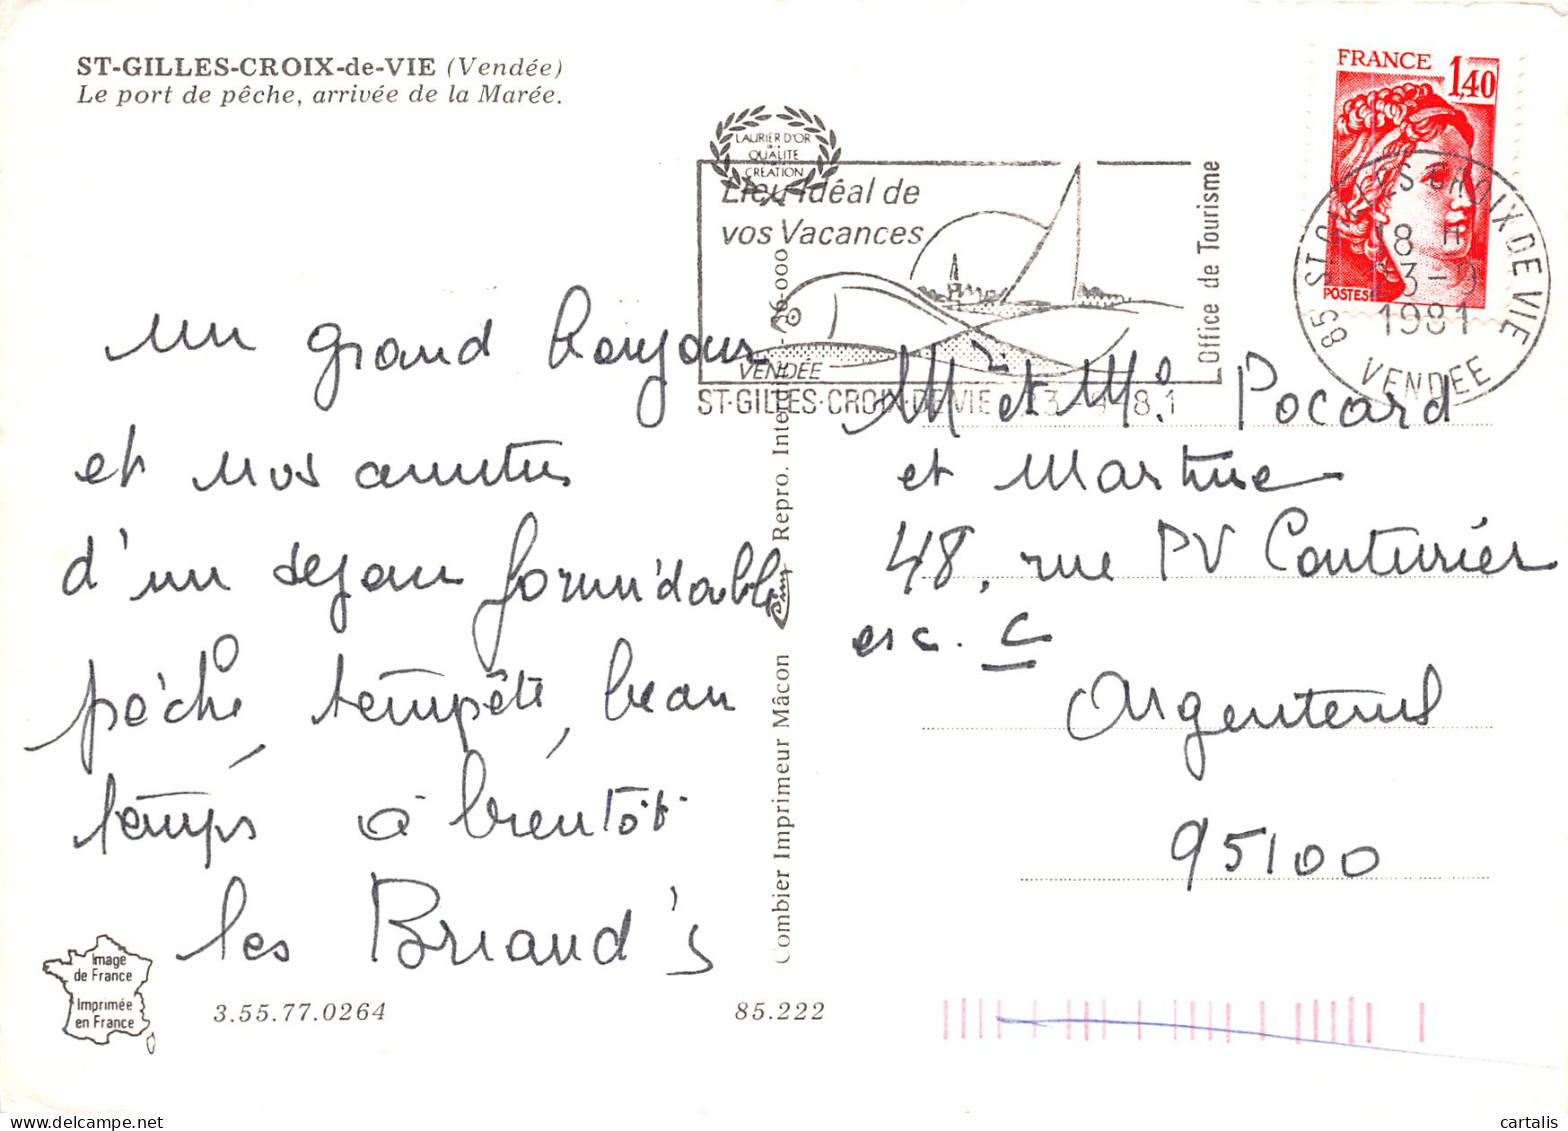 ST-GILLES-CROIX-de-VIE (Vendée)
Le port de pêche, arrivée de la Marée.
LAURIER D'OR
QUALITÉ
CRÉATION
Lieu Idéal de
vos Vacances
VENDÉE
Office de Tourisme
ST-GILLES-CROIX-DE VIE
FRANCE 1,40
POSTES
85 ST. GILLES CROIX DE VIE
18 H
23-9
1981
VENDEE
un grand bonjour
et nos amitiés
d'un séjour formidable
pêche tempête, beau
temps, à bientôt
les Briand's
Mr et Me. Pocard
et Martine
48, rue PV Couturier
esc. C
Argenteuil
95100
Combier Imprimeur Mâcon
Repro. Interd.
Image
de France
Imprimée
en France
3.55.77.0264
85.222
cartalis